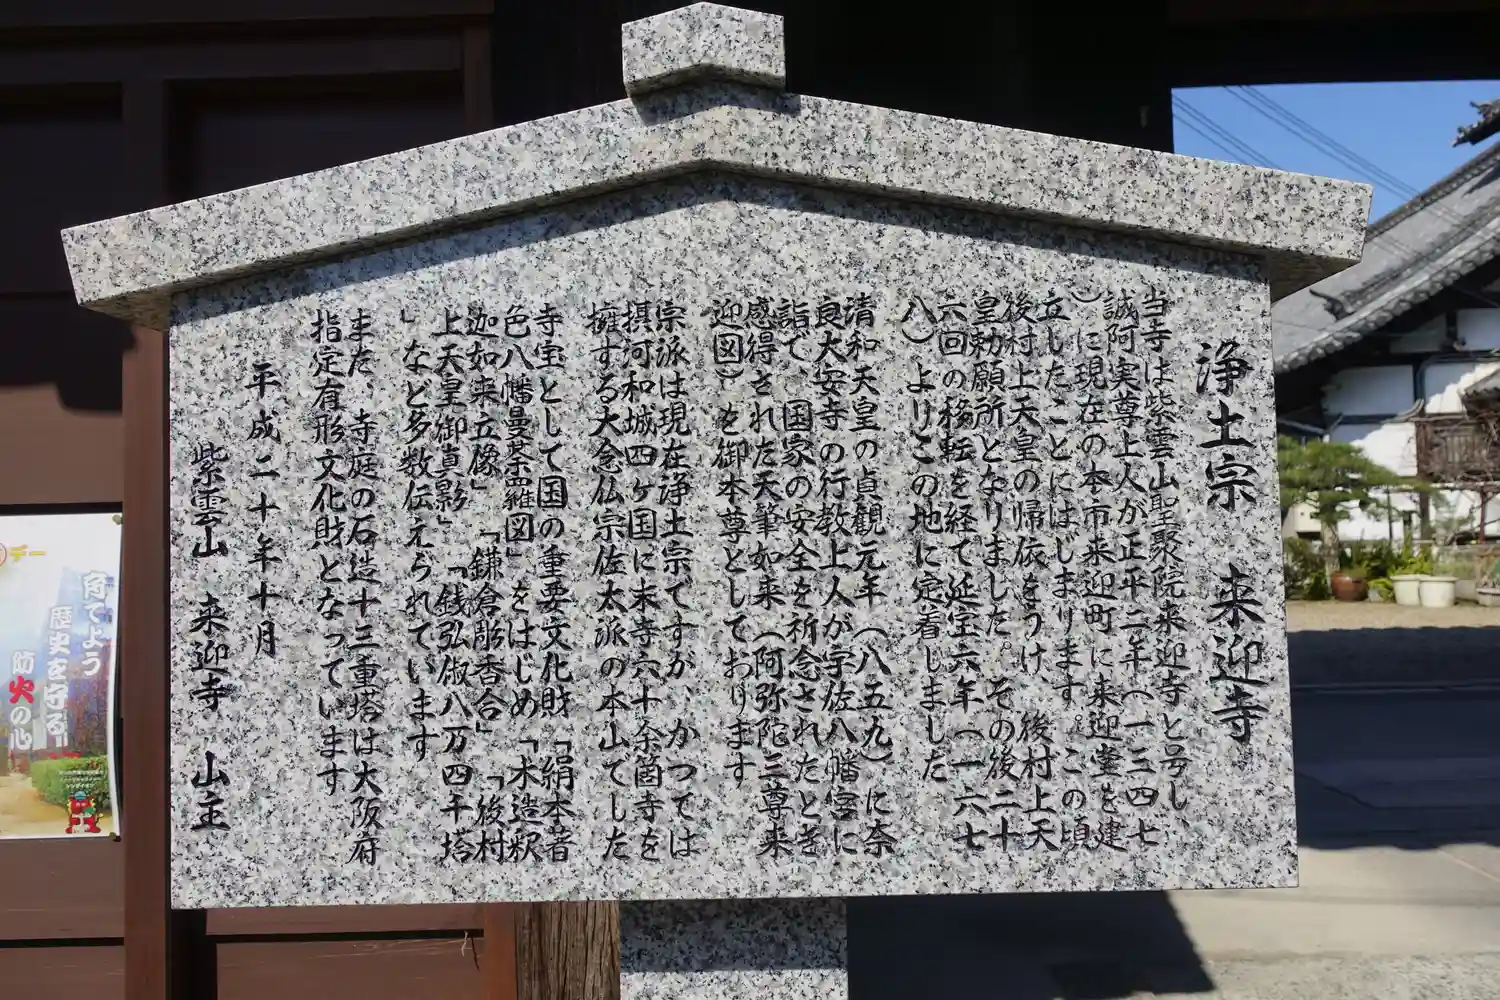 浄土宗 来迎寺
当寺は紫雲山聖聚院来迎寺と号し、
誠阿実尊上人が正平二年(一三四七
)に現在の本市来迎町に来迎堂を建
立したことにはじまります。この頃
後村上天皇の帰依をうけ、後村上天
皇勅願所となりました。その後二十
六回の移転を経て延宝六年(一六七
八)よりこの地に定着しました
清和天皇の貞観元年(八五九)に奈
良大安寺の行教上人が宇佐八幡宮に
詣で、国家の安全を祈念されたとき
感得された天筆如来(阿弥陀三尊来
迎図)を御本尊としております
宗派は現在浄土宗ですが、かつては
摂河和城四ヶ国に末寺六十余箇寺を
擁する大念仏宗佐太派の本山でした
寺宝として国の重要文化財「絹本著
色八幡曼荼羅図」をはじめ「木造釈
迦如来立像」「鎌倉彫香合」「後村
上天皇御真影」「銭弘俶八万四千塔
」など多数伝えられています
また、寺庭の石造十三重塔は大阪府
指定有形文化財となっています
平成二十年十月
紫雲山 来迎寺 山主
デー
育てよう
歴史を守る
防火の心